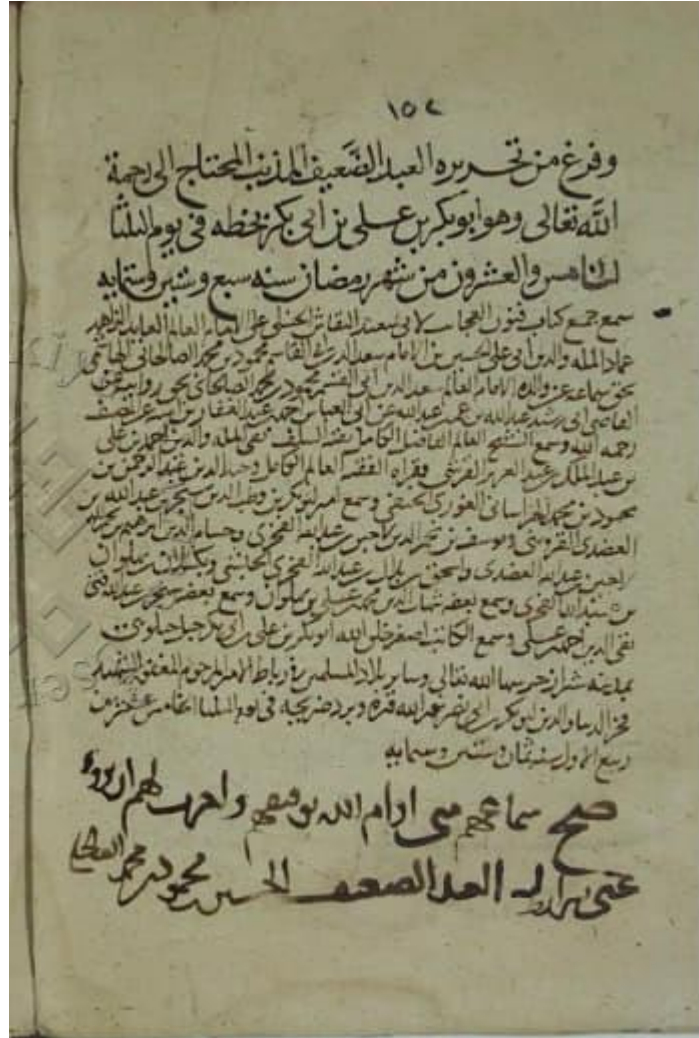 ١٥٧
وفرغ من تحريره العبد الضعيف المذنب المحتاج الى رحمة
الله تعالى وهو ابوبكر بن على بن ابى بكر بخطه فى يوم الثلثا
الخامس والعشرون من شهر رمضان سنه سبع وستين وستمايه
سمع جميع كتاب فنون العجاب لابى سعيد النقاش الحنبلى على الامام العالم العابد الزاهد
عماد المله والدين ابى على الحسين بن الامام سعد الدين ابى القاسم محمود بن محمد الصالحانى
بحق سماعه عن والده الامام العالم سعد الدين ابى القسم محمود بن محمد الصالحانى بحق روايته عن
القاضى ابى رشيد عبدالله بن عمر بن عبدالله عن ابى العباس احمد بن عبد الغفار بن
رحمه الله وسمع الشيخ العالم الفاضل الكامل بقية السلف تقى المله والدين احمد بن على
بن عبد الملك بن عبد العزيز القرشى بقراة الفقيه العالم الكامل وحيد الدين عبد الرحمن بن
محمود بن محمد الخراسانى الغورى الحنفى وسمع امير ابوبكر بن قطب الدين سنجر بن عبد الله بن
العضدى القزوينى ويوسف بن فخر الدين لاجين بن عبد الله الفخرى وحسام الدين ابرهيم بن
لاجين بن عبدالله العضدى واسحق بن بلال بن عبد الله الفخرى
بن عبد الله الفخرى وسمع بعضه شهاب الدين محمد بن على بن پهلوان وسمع بعضه سنجر بن عبد الله فتى
تقى الدين احمد بن على وسمع الكاتب اصغر خلق الله ابوبكر بن على بن ابى بكر
بمدينه شيراز حرسها الله تعالى وساير بلاد المسلمين فى رباط الامير المرحوم المغفور الشهيد
فخر الدنيا والدين ابوبكر بن ابى نصر نور الله قبره وبرد ضريحه فى يوم الثلثا الخامس عشر من
ربيع الاول سنه ثمان وستين وستمايه
صح سماعهم منى ادام الله توفيقهم واجزت لهم ان يرووه
عنى العبد الضعيف الحسين بن محمود بن محمد الصالحانى